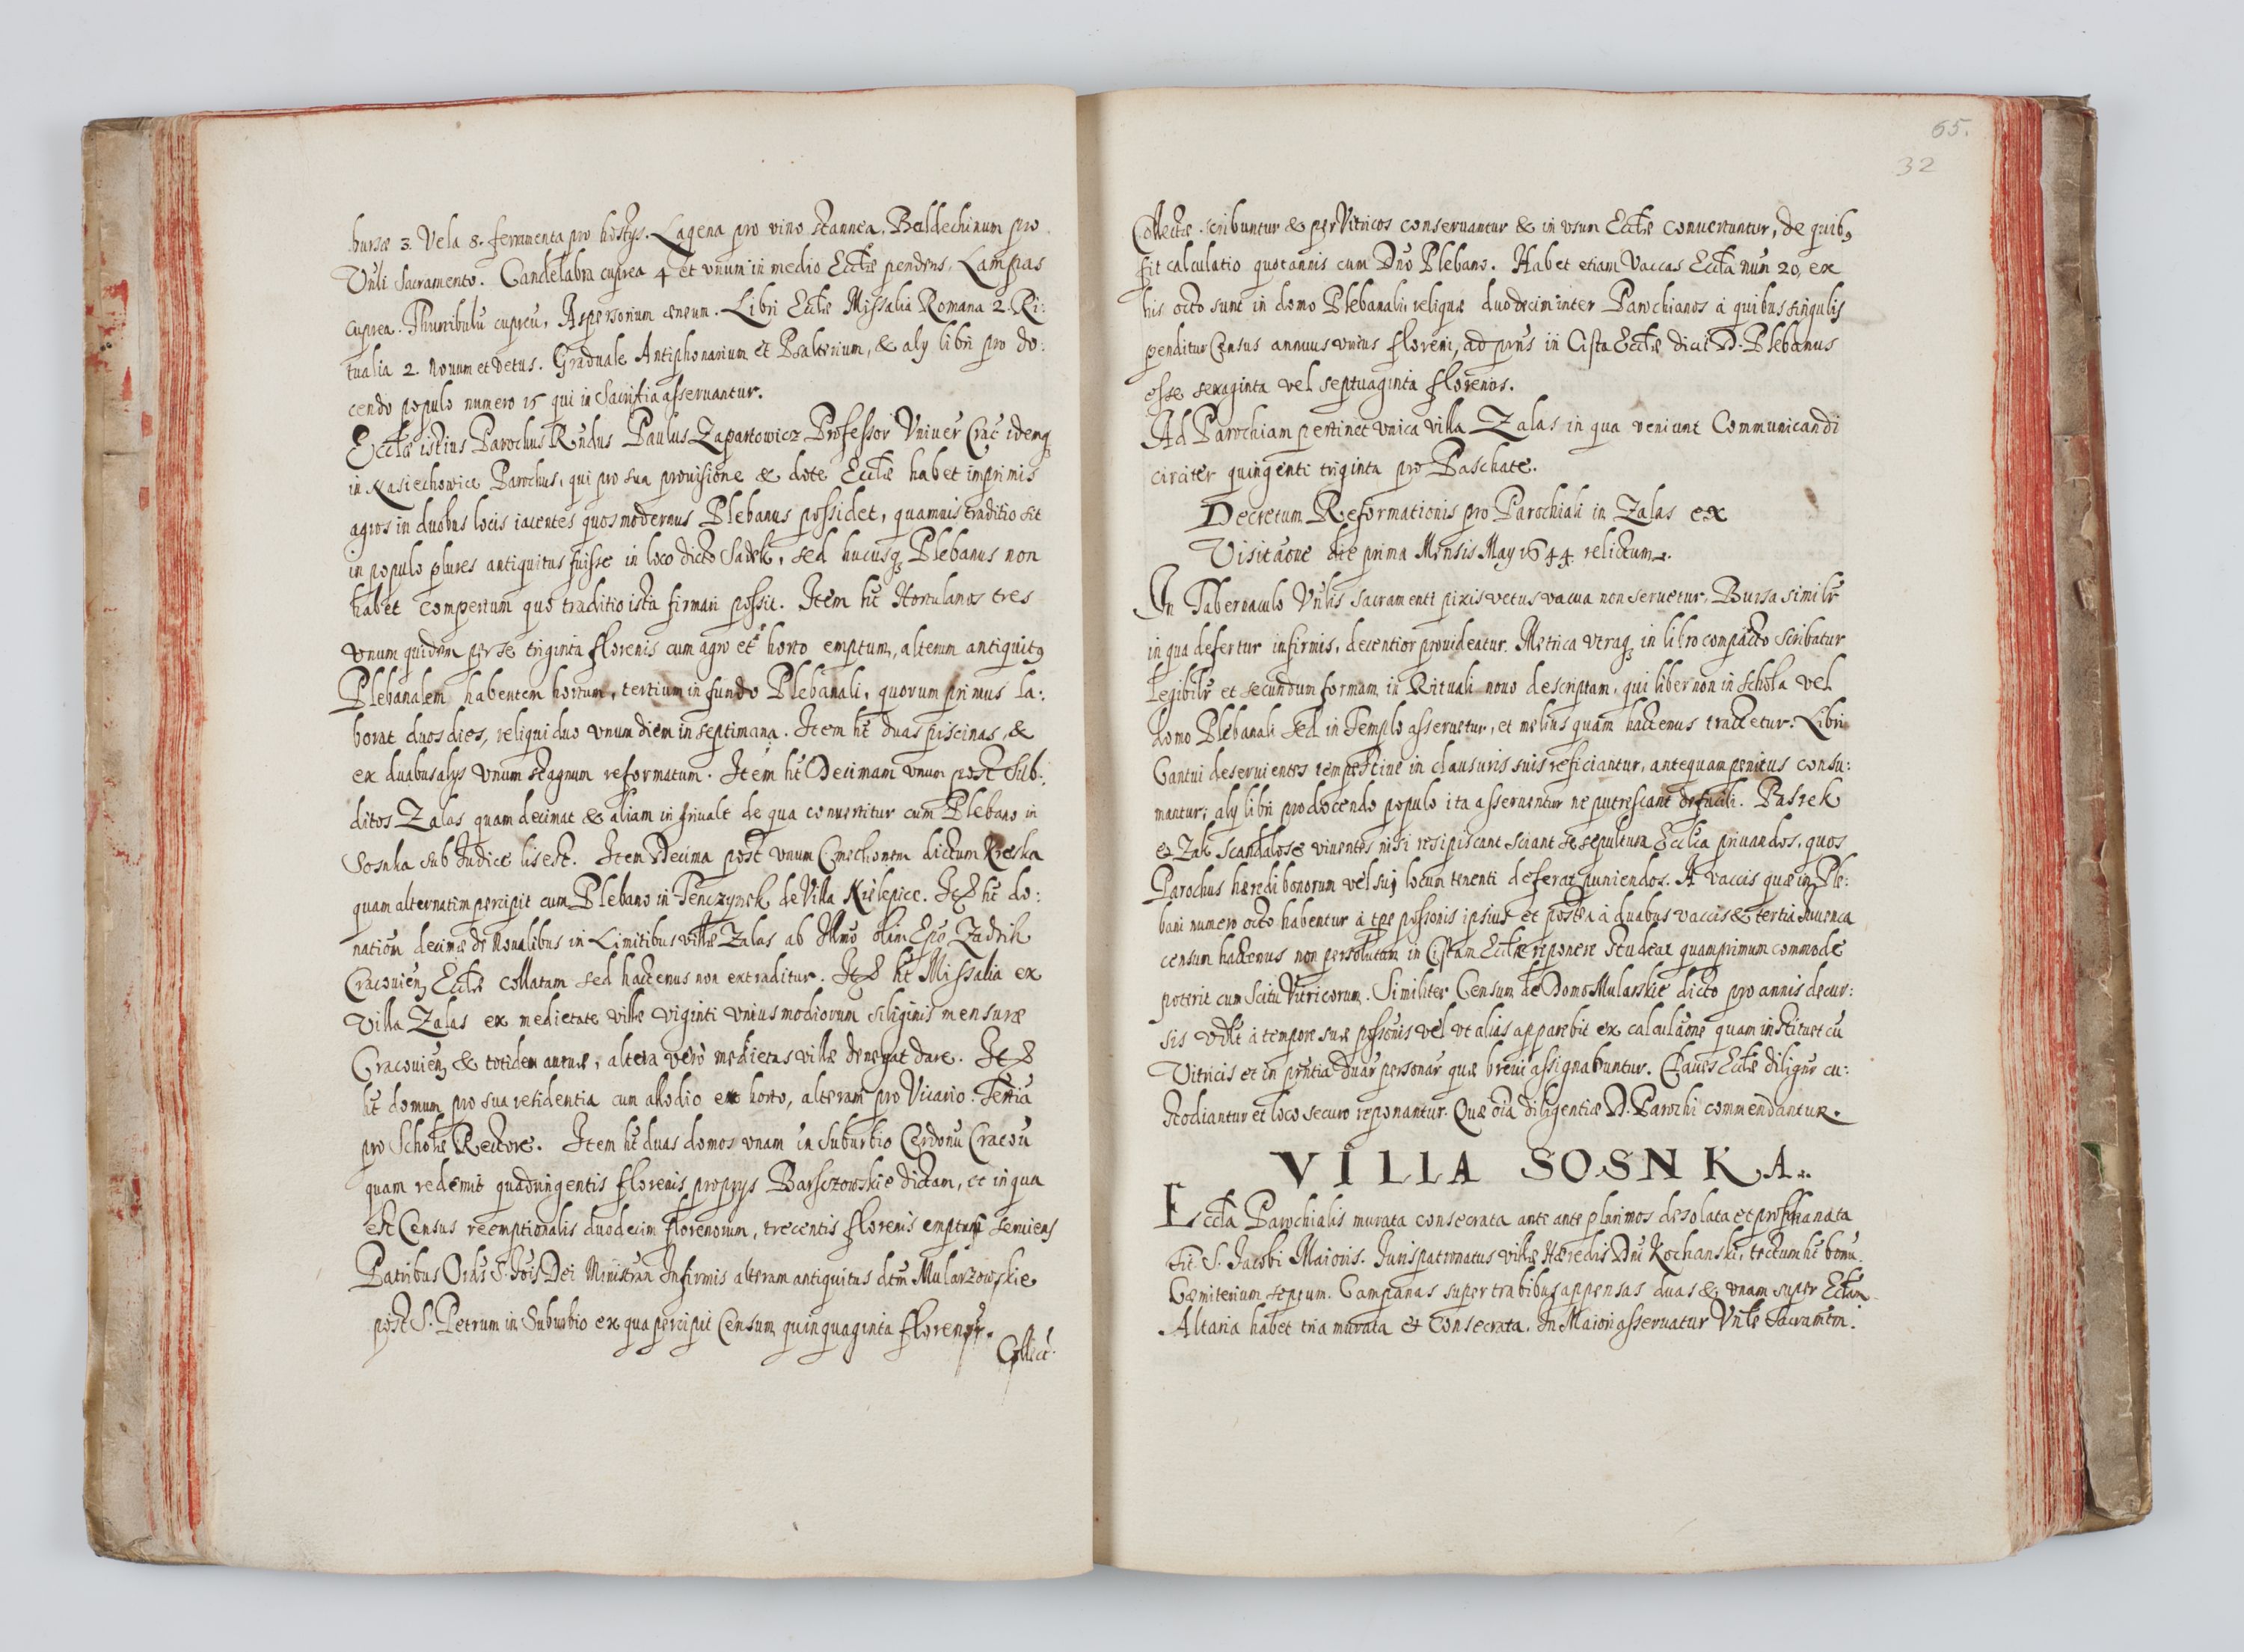 bursæ 3. Vela 8. ferramenta pro hostys. Lagena pro vino stannea, Baldechinum pro
Vnli Sacramento. Candelabra cuprea 4 et vnum in medio Ecctæ pendens, Lampas
cuprea. Thuribulũ cupreũ, Aspersorium æneum. Libri Ecctæ Missalia Romana 2. Ri:
tualia 2. nouum et vetus. Graduale Antiphonarium et Psalterium, & aly libri pro do:
cendo populo numero 15 qui in Sacristia asseruantur.
Ecctæ istius Parochus Rndus Paulus Zapartowicz Professor Vniuer Crac idemq
in Rasiechowice Parochus, qui pro sua prouisione & dote Ecctæ habet imprimis
agros in duobus locis iacentes quos modernus Plebanus possidet, quamuis traditio sit
in populo plures antiquitus fuisse in loco dicto Sadek, sed hucusq Plebanus non
habet compertum quo traditio ista firmari possit. Item ht Hortulanos tres
vnum quidem per se triginta florenis cum agro et horto emptum, alterum antiquit9
Plebanalem habentem hortum, tertium in fundo Plebanali, quorum primus la:
borat duos dies, reliqui duo vnum diem in septimana. Item ht duas piscinas, &
ex duabus alys vnum stagnum reformatum. Item ht Decimam vnam post Sub:
ditos Zalas quam decimat & aliam in frualt de qua conuertitur cum Plebano in
Sosnka sub Judice lis est. Item Decima post vnum Cmethonem dictum Kreska
quam alternatim percipit cum Plebano in Tenczynek de Villa Kielepice. Ite ht do:
nationẽ decimæ de Noualibus in Limitibus villæ Zalas ab Illmo olim Epo Zadzik
Cracouien Ecctæ collatam sed hactenus non extraditur. Ite ht Missalia ex
Villa Zalas ex medietate villæ viginti vnius modiorum siliginis mensuræ
Cracouien & totidem auenæ, altera vero medietas villæ denegat dare. Ite
ht domum pro sua residentia cum allodio et horto, alteram pro Vicario. Tertiã
pro Scholæ Rectore. Item ht duas domos vnam in Suburbio Cerdonũ Cracou
quam redemit quadringentis florenis proprys Barsczowskie dictam, et in qua
est Census reemptionalis duodecim florenorum, trecentis florenis emptus seruiens
Patribus Ordis S. Jois Dei Ministran Infirmis alteram antiquitus dctm Mularzowskie
post S. Petrum in Suburbio ex qua percipit Censum quinquaginta florenor.
Collect.
65.
32
Collectæ scribuntur & per Vitricos conseruantur & in vsum Ecctæ conuertuntur, de quib9
fit calculatio quotannis cum Dno Plebano. Habet etiam Vaccas Eccta num 20, ex
his octo sunt in domo Plebanali, reliquæ duodecim inter Parochianos a quibus singulis
penditur Census annuus vnius floreni, ad prns in Cista Ecctæ dicit D. Plebanus
esse sexaginta vel septuaginta florenos.
Ad Parochiam pertinet vnica villa Zalas in qua veniunt Communicandi
circiter quingenti triginta pro Paschate.
Decretum Reformationis pro Parochiali in Zalas ex
Visitãone die prima Mensis May 1644. relictum.
In Tabernaculo Vnlis Sacramenti pixis vetus vacua non seruetur, Bursa similr
in qua defertur infirmis, decentior prouideatur. Metrica vtraq in libro compacto scribatur
legibilr et secundum formam in Rituali nouo descriptam, qui liber non in Schola vel
domo Plebanali sed in Templo asseruetur, et melius quam hactenus tractetur. Libri
Cantui deseruientes tempestiue in clausuris suis reficiantur, antequam penitus consu:
mantur, aly libri pro docendo populo ita asseruentur ne putrescant de facili. Pastek
& Zak scandalose viuentes nisi resipiscant sciant se sepultura Ecclica priuandos, quos
Parochus hæredi bonorum vel sui locum tenenti deferat puniendos. A vaccis quæ in Ple:
bani numero octo habentur a tpe possonis ipsius et postea a duabus vaccis & tertia Iuuenca
censum hactenus non persolutum in Cistam Ecctæ reponere studeat quamprimum commode
poterit cum scitu Vitricorum. Similiter Censum de Domo Mularskie dicto pro annis decur:
sis vdlt a tempore suæ possonis vel vt alias apparebit ex calculãone quam instituet cũ
Vitricis et in prntia duar personar quæ breui assignabuntur. Claues Ecctæ diligtr cu:
stodiantur et loco securo reponantur. Quæ oia diligentiæ D. Parochi commendantur.
VILLA SOSNKA.
Eccta Parochialis murata consecrata ante ante plurimos desolata et prophanata
Tit. S. Jacobi Maioris. Jurispatronatus villæ Hæredis Dni Kochanski, tectum ht bonũ.
Cæmiterium septum. Campanas super trabibus appensas duas & vnam super Ecctam
Altaria habet tria murata & consecrata. In Maiori asseruatur Vnle Sacramtm.